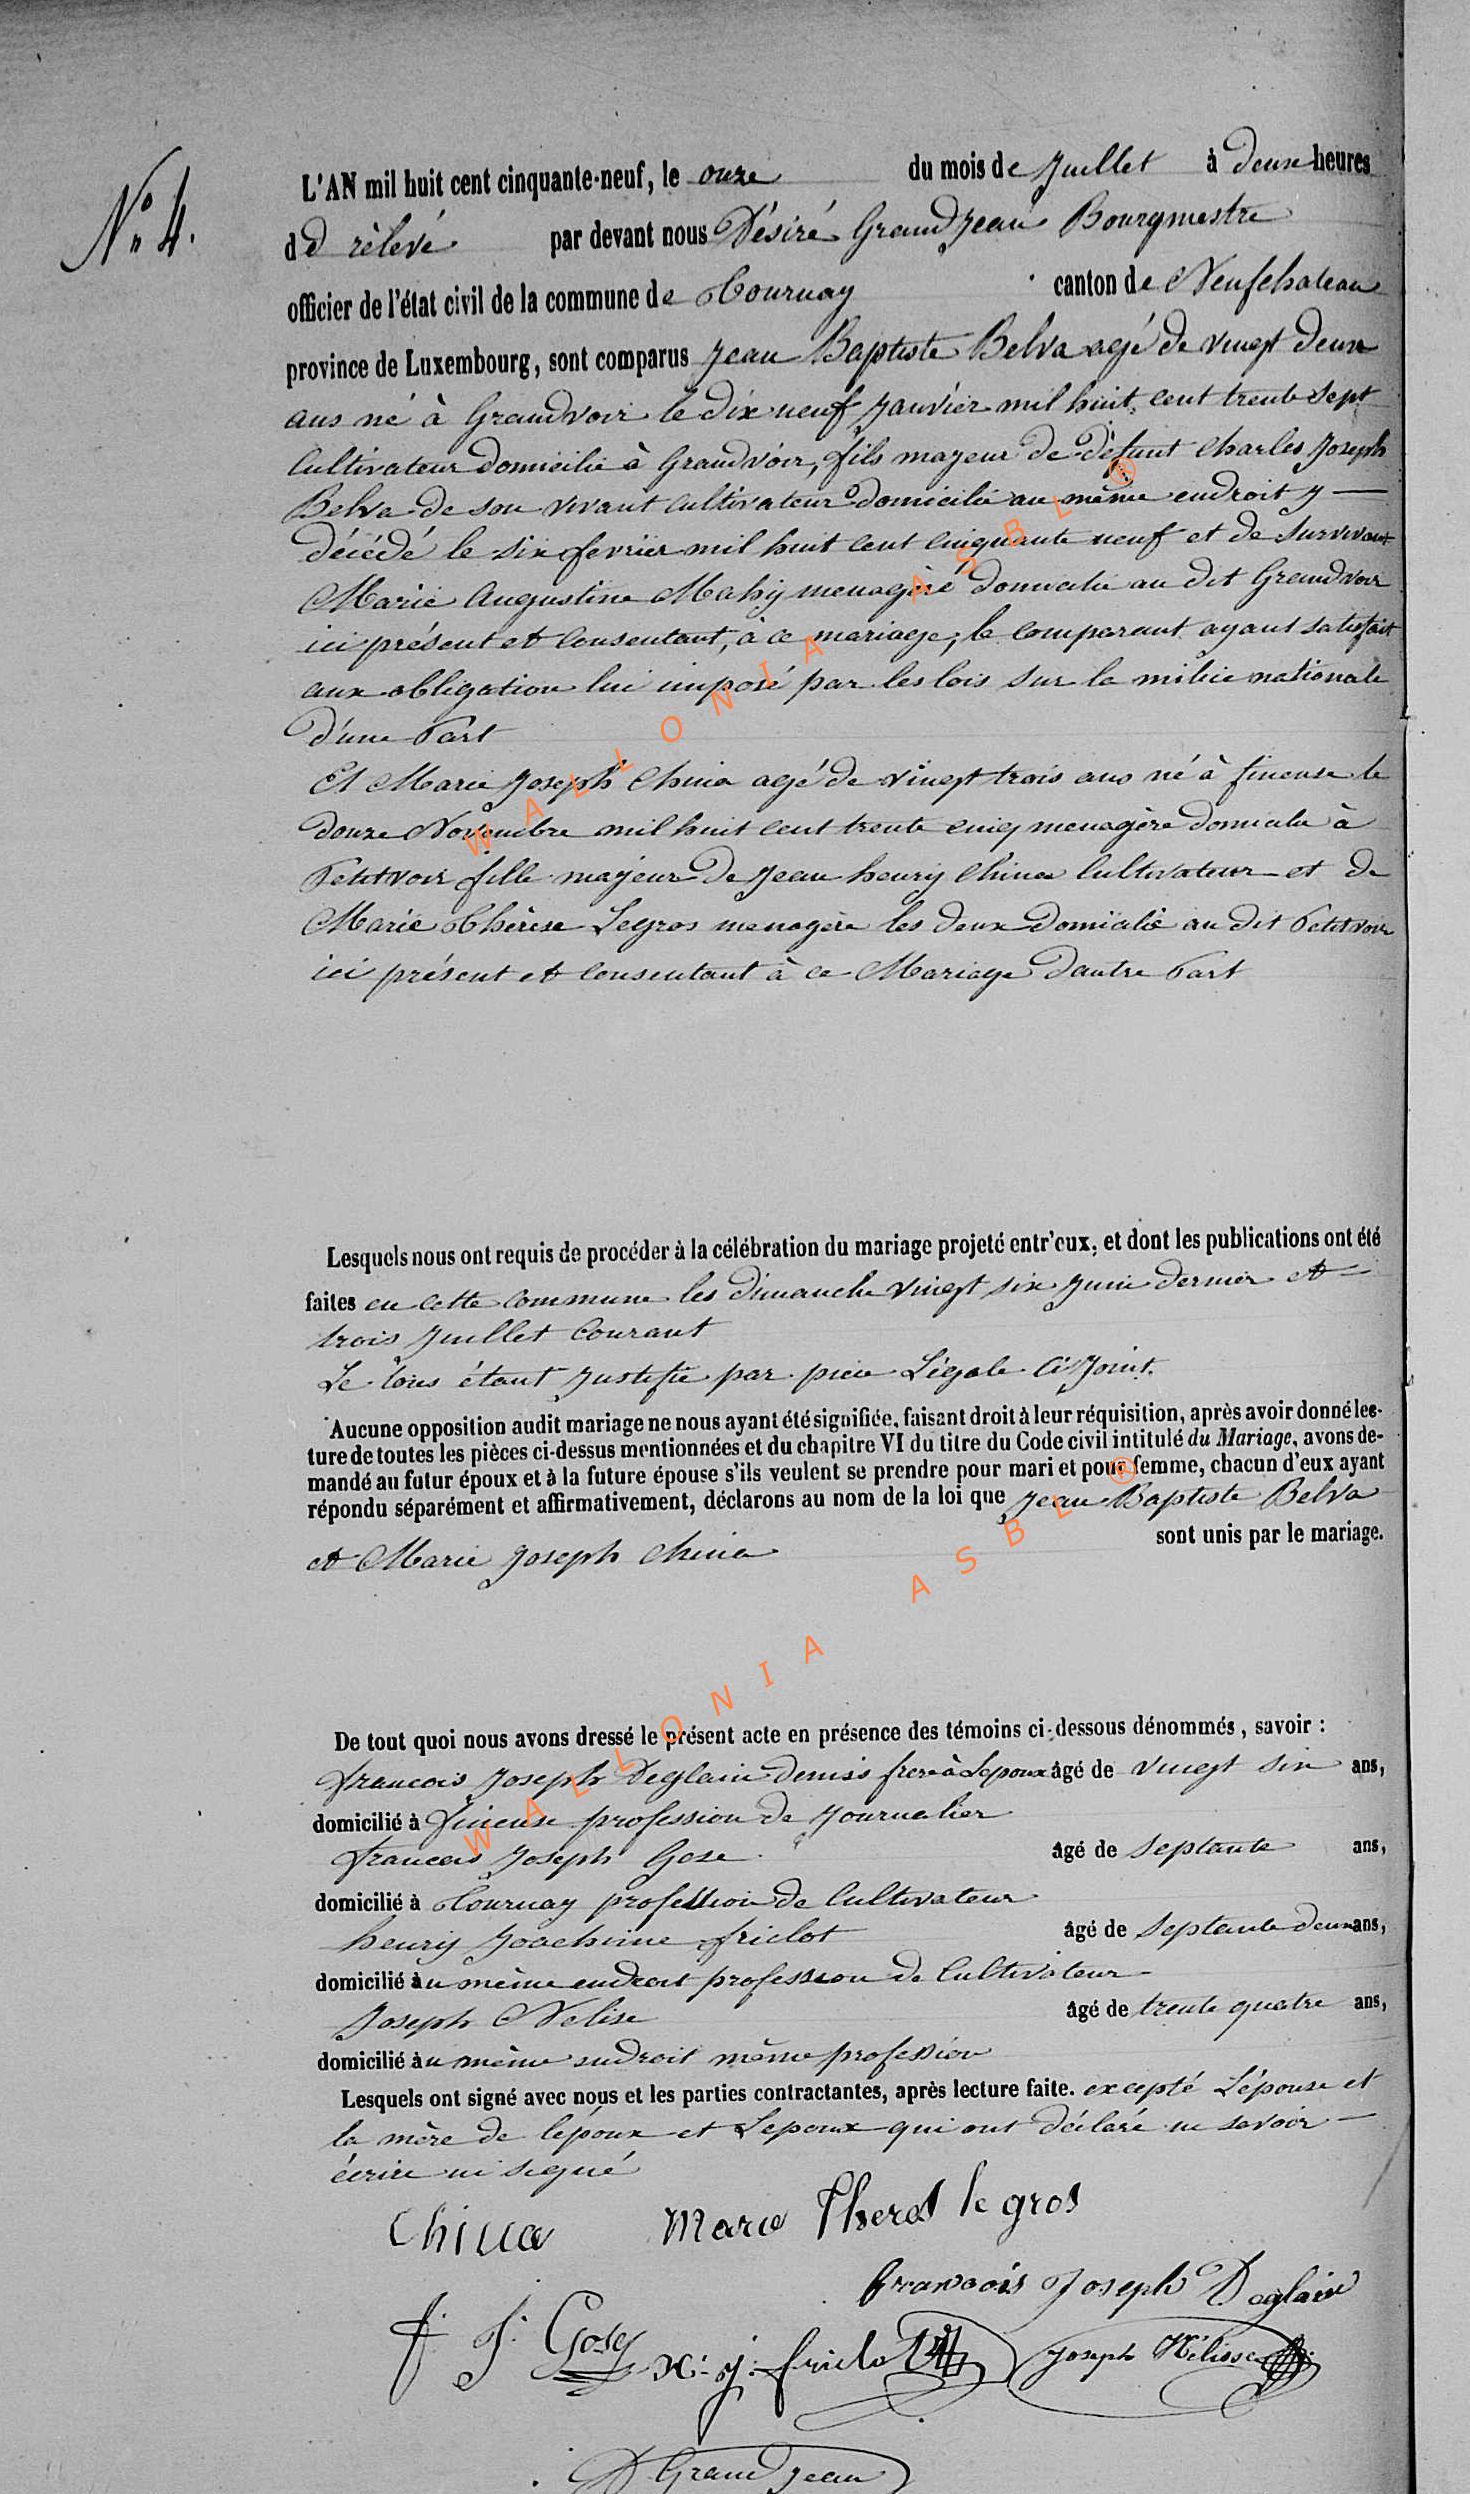 N° 4.
L'AN mil huit cent cinquante-neuf, le onze du mois de Juillet à deux heures
d d rélevé par devant nous Désiré Grandjean Bourgmestre
officier de l'état civil de la commune de Tournay canton de Neufchateau
province de Luxembourg, sont comparus Jean Baptiste Belva agé de vingt deux
ans né à Grandvoir le dix neuf Janvier mil huit cent trente sept
Cultivateur domicilié à Grandvoir, fils majeur de défunt Charles Joseph
Belva de son vivant cultivateur domicilié au même endroit y —
décédé le six fevrier mil huit cent cinquante neuf et de survivant
Marie Augustine Mahy menagère domicilié au dit Grandvoir
ici présent et consentant, à ce mariage, le comparant ayant satisfait
aux obligation lui imposé par les lois sur la milice nationale
d'une Part
Et Marie Joseph China agé de vingt trois ans né à fineuse le
douze Novembre mil huit cent trente cinq menagère domicilié à
Petitvoir fille majeur de Jean henry China Cultivateur et de
Marie Thérèse Legros menagère les deux domicilié au dit Petitvoir
ici présent et consentant à ce Mariage dautre Part
Lesquels nous ont requis de procéder à la célébration du mariage projeté entr'eux, et dont les publications ont été
faites en cette commune les dimanche vingt six Juin dernier et —
trois Juillet Courant
Le tous étant Justifié par piece Légale Ci Joint.
Aucune opposition audit mariage ne nous ayant été signifiée, faisant droit à leur réquisition, après avoir donné lec-
ture de toutes les pièces ci-dessus mentionnées et du chapitre VI du titre du Code civil intitulé du Mariage, avons de-
mandé au futur époux et à la future épouse s'ils veulent se prendre pour mari et pour femme, chacun d'eux ayant
répondu séparément et affirmativement, déclarons au nom de la loi que Jean Baptiste Belva
et Marie Joseph China sont unis par le mariage.
De tout quoi nous avons dressé le présent acte en présence des témoins ci-dessous dénommés, savoir :
francois Joseph Deglain demis frere à Lepoux âgé de vingt six ans,
domicilié à fineuse profession de Journalier
francois Joseph Gose âgé de septante ans,
domicilié à Tournay profession de Cultivateur
henry Joachime friclot âgé de septante deux ans,
domicilié àu même endroit profession de Cultivateur
Joseph Nelise âgé de trente quatre ans,
domicilié àu même endroit même profession
Lesquels ont signé avec nous et les parties contractantes, après lecture faite. excepté L'épouse et
la mère de l'époux et Lepoux qui ont déclaré ne savoir —
écrire ni signé
China Marie Theres le gros
francois Joseph Deglain
f. J. Gose H. j. friclot Joseph Nélisse
D Grandjean
WALLONIA ASBL ®
WALLONIA ASBL ®